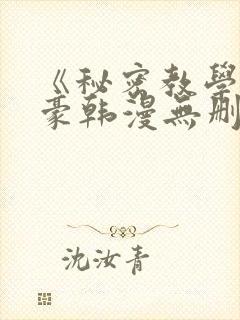 《秘密教學
豪韩漫無删
沈汝青